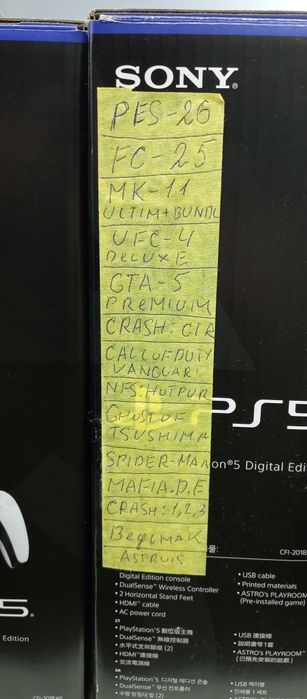 SONY
PES-26
FC-25
MK-11
ULTIM+BUNDL
UFC-4
DELUXE
GTA-5
PREMIUM
CRASH: CTR
CALL OF DUTY
VANGUARD
NFS: HOTPUR
GHOST OF
TSUSHIMA
PS5
SPIDER-MAN
n®5 Digital Edi
MAFIA.D.E
CRASH: 1,2,3
CFI-2018
Digital Edition console
• DualSense™ Wireless Controller
• 2 Horizontal Stand Feet
• HDMI™ cable
• AC power cord
• USB cable
• Printed materials
• ASTRO's PLAYROOM
(Pre-installed game)
5.
Edition
CT
• PlayStation®5 數位版主機
• DualSense™ 無線控制器
• 水平式支架腳座 (2)
• HDMI™連接線
• 交流電源線
• USB 連接線
• 說明書等1套
• ASTRO's PLAYROOM
(已預先安裝遊戲)
KR
• PlayStation®5 디지털 에디션 콘솔
• DualSense™ 무선 컨트롤러
• 수평 받침대 발 (2)
• USB 케이블
• 인쇄물 1 세트